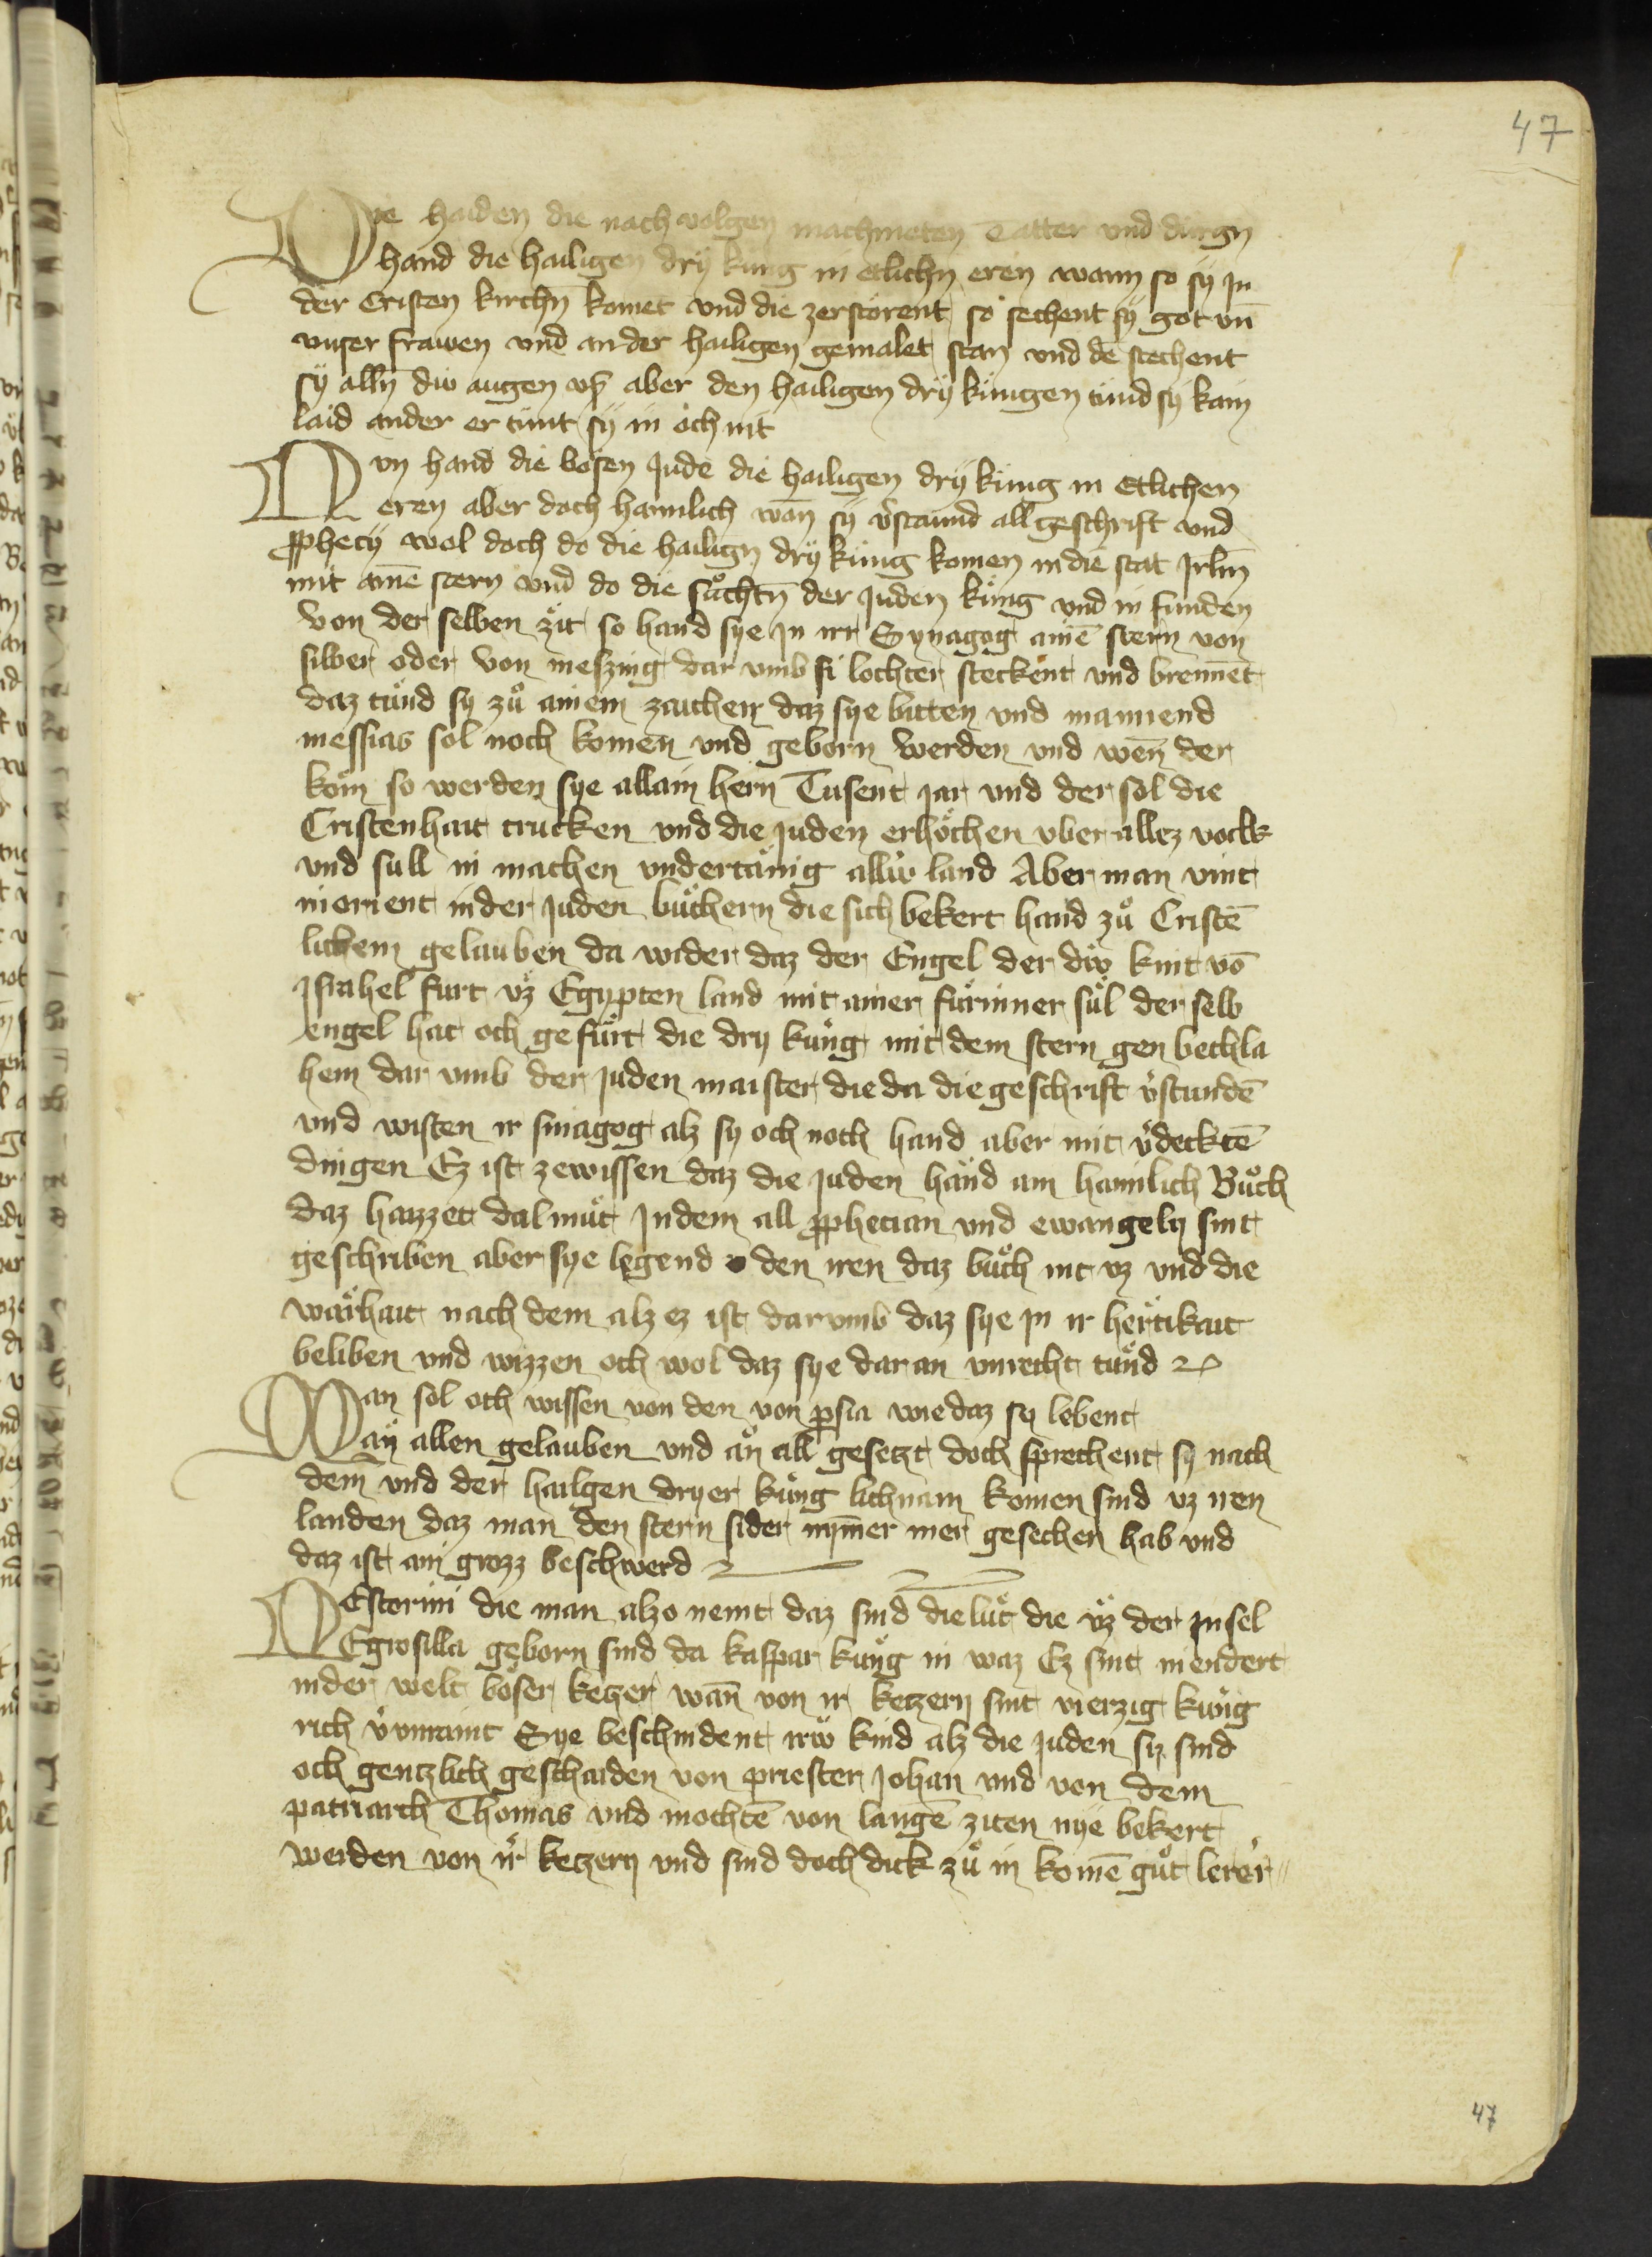 47
Die haiden die nach volgen machmeten Tatter vnd dürgn
hand die hailigen drÿ küng in etlichn eren wann so sÿ jn
der Cristen kirchn̄ komet vnd die zerstörent so sechent sÿ got vn̄
vnser frawen vnd ander hailigen gemalet stan vnd dē stechent
sÿ alln̄ diw augen vß aber den hailigen drÿ künigen tünd sÿ kain
laid ander er tünt sÿ in öch nit
Nvn hand die bösen Jude die hailigen drÿ küng in Etlichen
eren aber doch haimlich wan̄ sÿ v̓staund all geschrift vnd
ꝓphecÿ wol doch do die hailign̄ drÿ küng komen in die stat Jrlm̄
mit aīnē stern vnd do die sůchtn̄ der Juden küng vnd in funden
Von der selben zit so hand sye jn irr Synagog ainē stern von
silber oder von meszing dar vmb si lochter steckent vnd brennēt
daz tünd sy zů ainem zaichen daz sye bitten vnd mainend
messias sol noch komen vnd geborn werden vnd wen̄ der
kom so werden sye allain hern Tusent jar vnd der sol die
Cristenhait trucken vnd die juden erhöchen vber allez volk
vnd sull in machen vndertänig alliv land Aber man vint
nierient in der juden büchern die sich bekert hand zů Cristē
lichem gelauben da wider daz der Engel der div kint vō
Jsrahel furt vz Egypten land mit ainer fürinner sül der selb
engel hat och gefürt die dry küng mit dem stern gen bethla
hem dar vmb der juden maister die da die geschrift v̓stundē
vnd wisten ir sinagog alz sy och noch hand aber mit v̓decktē
dingen Ez ist zewissen daz die juden hand ain haimlich Bůch
daz haizzet dalmüt Jn dem all ꝓphecian vnd ewangely sint
geschriben aber sye legend den iren daz bůch nit vz vnd die
warhait nach dem alz ez ist darvmb daz sye jn ir hertikait
beliben vnd wizzen och wol daz sye daran vnrecht tünd
Man sol och wissen von den von ꝑsia wie daz sy lebent
an allen gelauben vnd an all gesetzt doch sprechent sy nach
dem vnd der hailgen dryer küng lichnam komen sind vz iren
landen daz man den stern sider nym̄er mer gesechen hab vnd
daz ist ain grozz beschwerd
NEstorini die man alzo nemt daz sind die lüt die vz der jnsel
Egrosilla geborn sind da kaspar küng in waz Ez sint niendert
in der welt böser ketzer wan̄ von ir ketzery sint vierzig küng
rich v̓unraint Sye beschindent iriv kind alz die juden sy sind
och gentzlich geschaiden von priester johan vnd von dem
patriarch Thomas vnd mochtē von langē ziten nye bekert
werden von ir ketzery vnd sind doch dick zů in komē gůt lerer
47